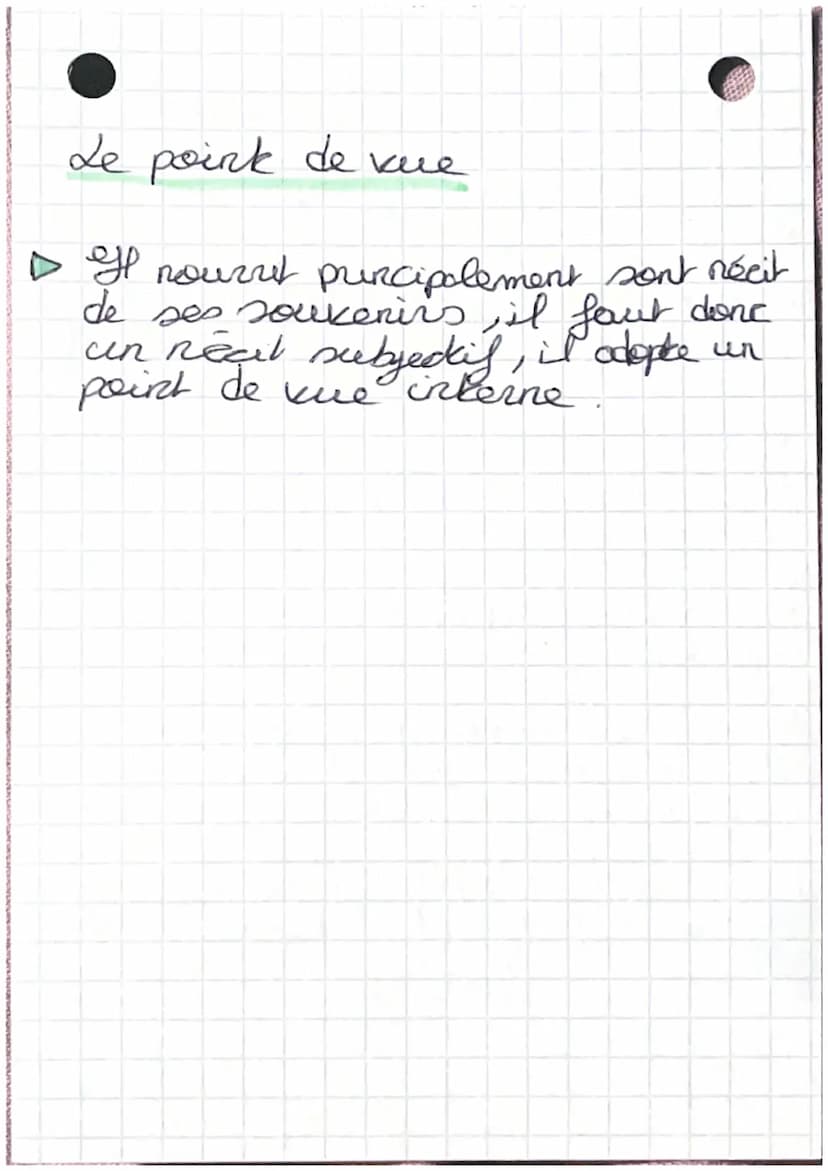 Le point de vue
Il nourrit principalement sont récit
de ses souvenirs, il faut donc
un récit subjectif, il adopte un
point de vue interne.